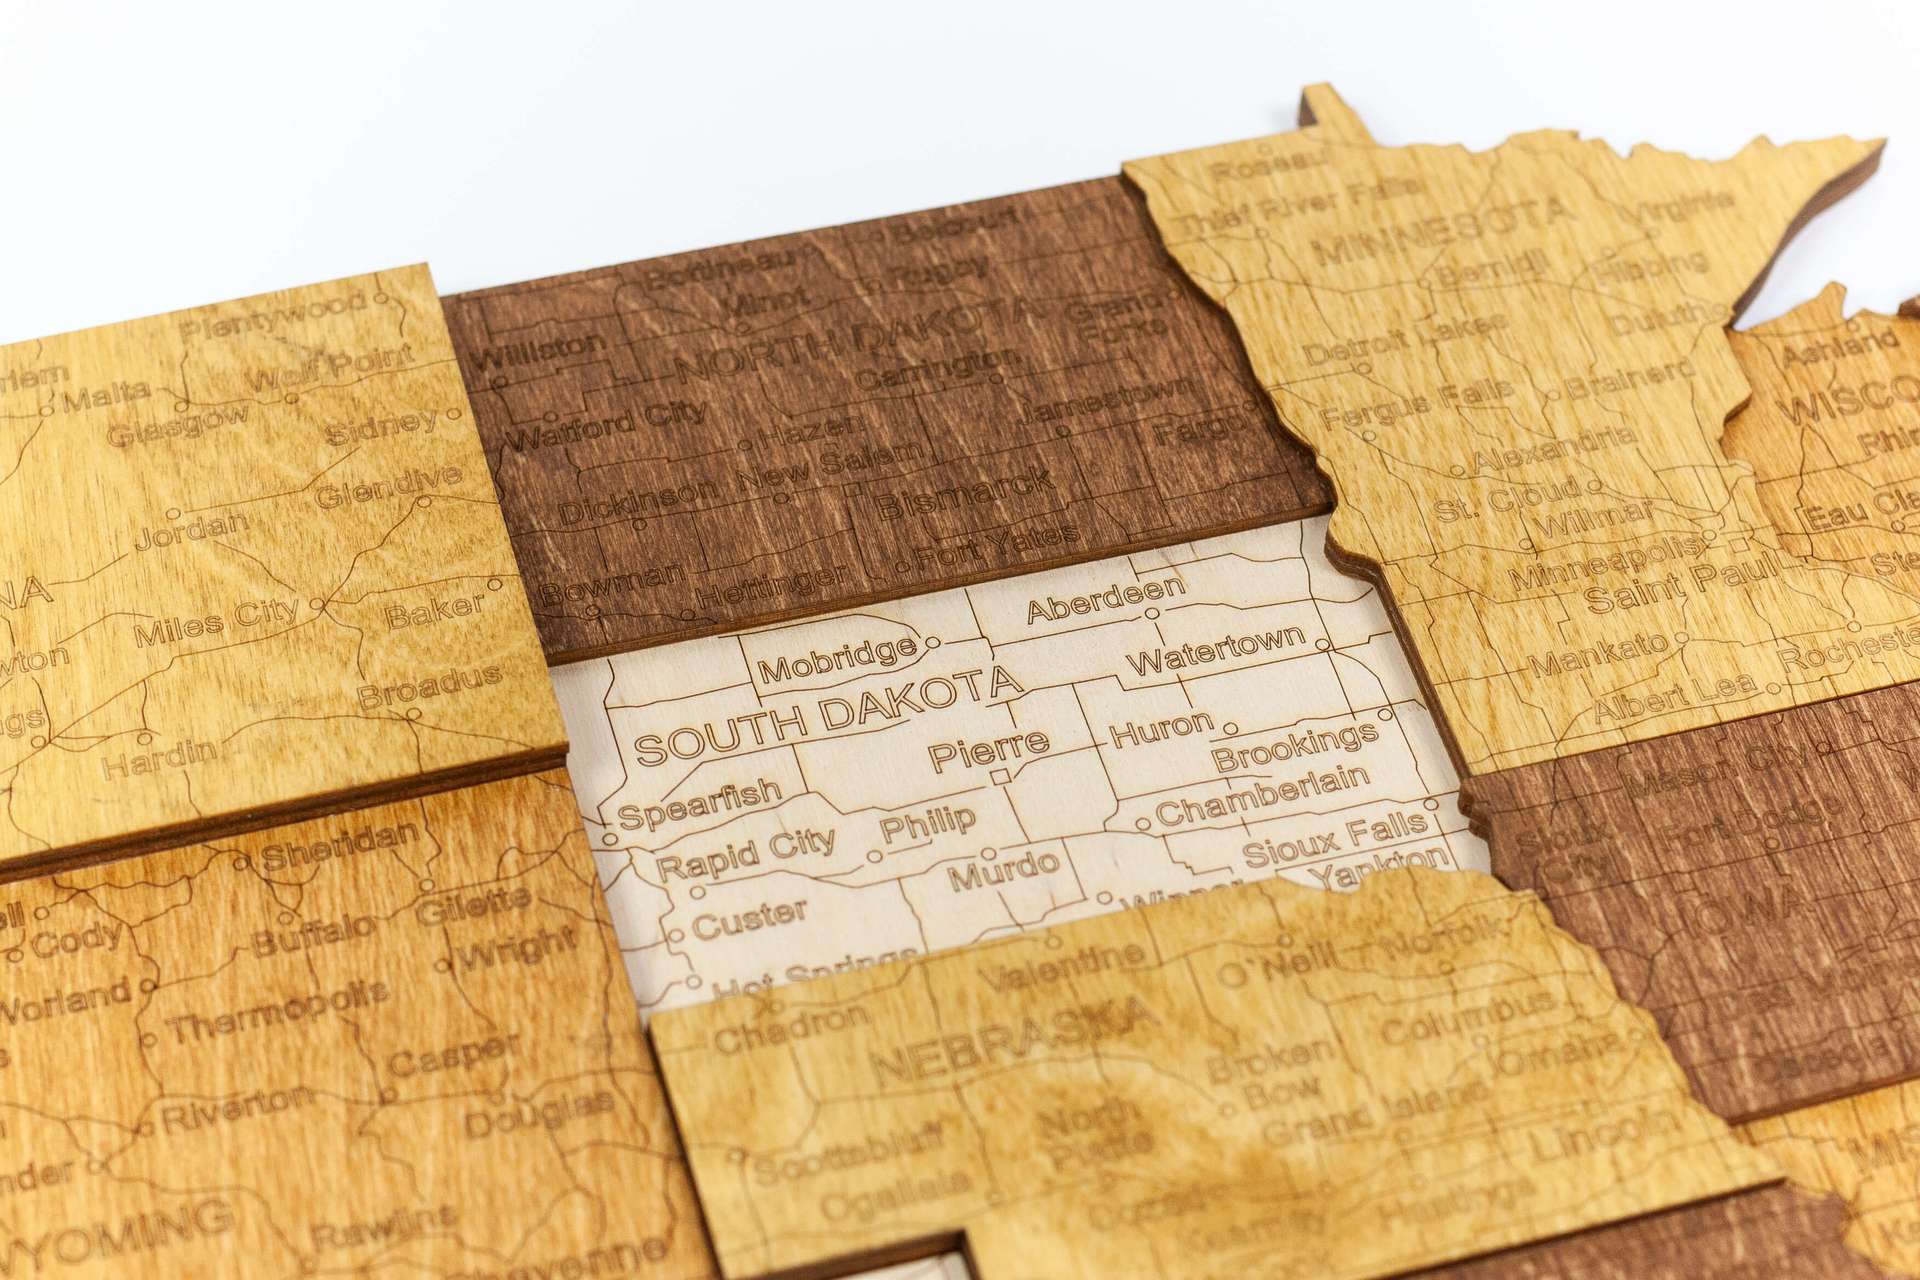 Plentywood
Malta
Wolf Point
Glasgow
Sidney
Glendive
Jordan
Miles City
Baker
Broadus
Hardin
NORTH DAKOTA
Belcourt
Bottineau
Rugby
Minot
Grand
Forks
Williston
Carrington
Watford City
Hazen
Jamestown
Fargo
New Salem
Dickinson
Bismarck
Fort Yates
Bowman
Hettinger
Roseau
Thief River Falls
MINNESOTA
Virginia
Bemidji
Hibbing
Duluth
Detroit Lakes
Brainerd
Fergus Falls
Alexandria
St. Cloud
Willmar
Minneapolis
Saint Paul
Mankato
Albert Lea
Ashland
Aberdeen
Mobridge
Watertown
SOUTH DAKOTA
Pierre
Huron
Brookings
Spearfish
Chamberlain
Rapid City
Philip
Sioux Falls
Murdo
Yankton
Custer
Winner
Hot Springs
Sheridan
Cody
Buffalo
Gilette
Wright
Worland
Thermopolis
Casper
Riverton
Douglas
WYOMING
Rawlins
Valentine
O'Neill
Norfolk
Chadron
NEBRASKA
Columbus
Broken
Bow
Omaha
North
Platte
Grand Island
Scottsbluff
Lincoln
Ogallala
Hastings
Mason City
Fort Dodge
Sioux
City
IOWA
Des Moines